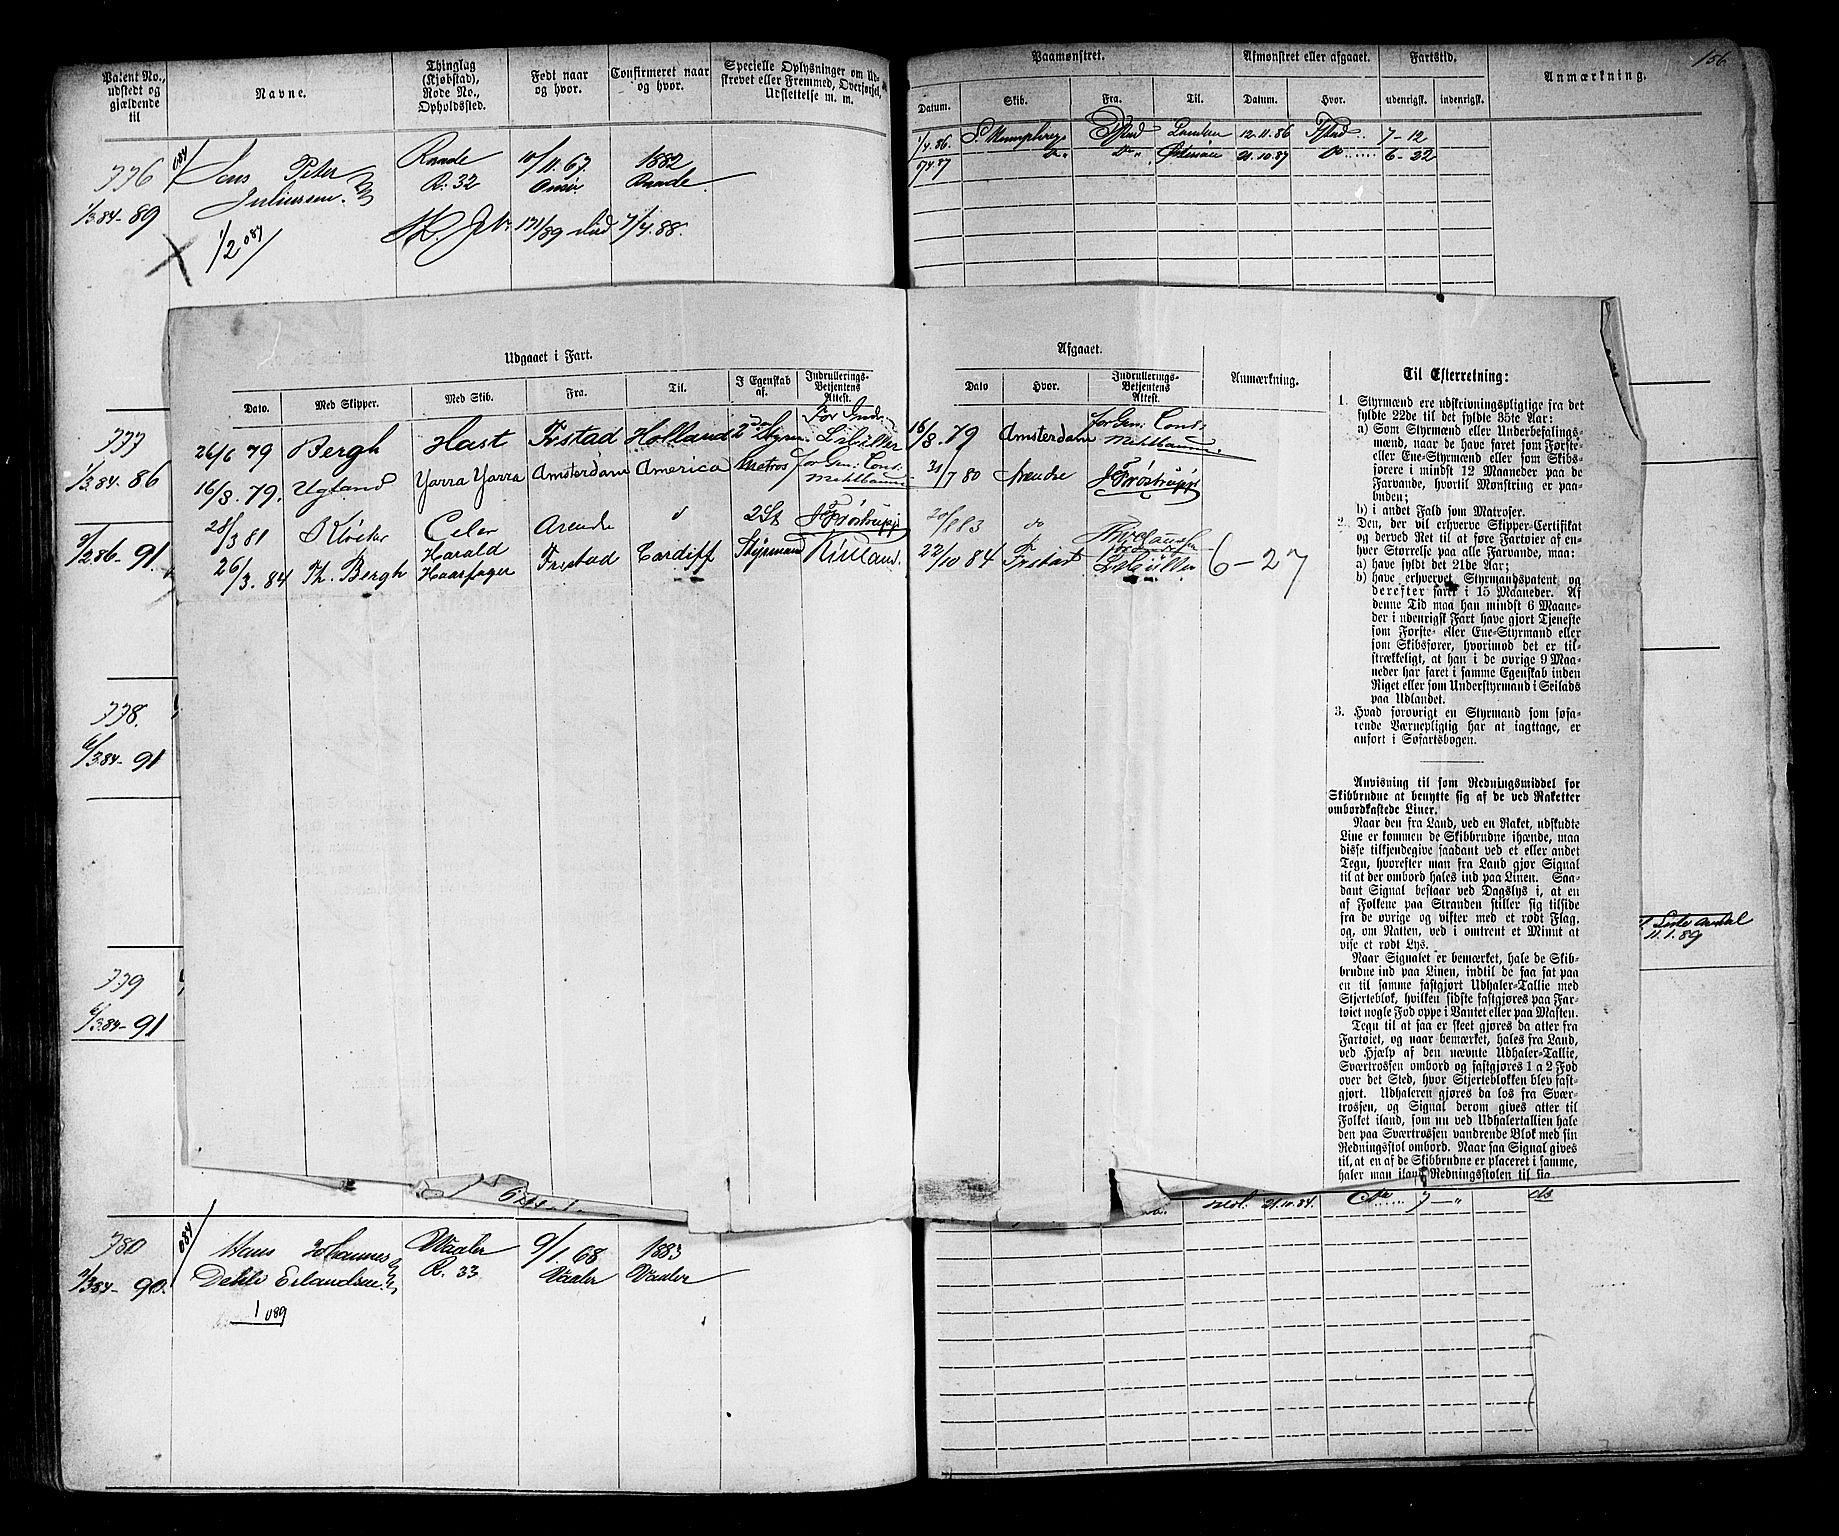 156
Patent No., udstedt og gjældende til
Navne.
Thinglag (Kjøbstad), Rode No., Opholdssted.
Født naar og hvor.
Confirmeret naar og hvor.
Specielle Oplysninger om Udskrevet eller Fremmed, Overførsel, Udslettelse m. m.
Paamønstret.
Afmønstret eller afgaaet.
Fartstid.
Anmærkning.
Datum. Skib. Fra. Til. Datum. Hvor. udenrigsk. indenrigsk.
776
1/3.84-89
Peter
Juliussen
1/2 084
Raade
R. 32
10/11.67
1882
Raade
7/4.88.
1/4.86. Fstad London 12.11.86 Fstad 7-12
Do Do 21.10.87 Do 6-22
777
1/3.84-86
86-91
778.
6/3.84-91
779
6/3.84-91
Udgaaet i Fart.
Dato. Med Skipper. Med Skib. Fra. Til. I Egenskab af. Indrullerings-Betjentens Attest.
Afgaaet.
Dato Hvor. Indrullerings-Betjentens Attest.
Anmærkning.
26/6 79 Bergh Hast Frstad Holland 16/8.79 Amsterdam
16/8.79. Ugland Yarra Yarra Amsterdam America Matros 31/7 80 Arendal
28/3 81 Celer Arendal 2 St
26/3.84 Th. Bergh Harald Haarfager Frstad Cardiff Styrmand 22/10 84 Frstad 6-27
Til Efterretning:
1. Styrmænd ere udskrivningspligtige fra det
fyldte 22de til det fyldte 35te Aar:
a) Som Styrmænd eller Underbefalings-
mænd, naar de have faret som Første-
eller Ene-Styrmænd eller som Skibs-
førere i mindst 12 Maaneder paa de
Farvande, hvortil Mønstring er paa-
buden;
b) i andet Fald som Matroser.
2. Den, der vil erhverve Skipper-Certifikat
og derved Ret til at føre Fartøier af en-
hver Størrelse paa alle Farvande, maa:
a) have fyldt det 21de Aar;
b) have erhvervet Styrmandspatent og
derefter faret i 15 Maaneder. Af
denne Tid maa han mindst 6 Maane-
der i udenrigsk Fart have gjort Tjeneste
som Første- eller Ene-Styrmand eller
som Skibsfører, hvorimod det er til-
strækkeligt, at han i de øvrige 9 Maa-
neder har faret i samme Egenskab inden
Riget eller som Understyrmand i Seilads
paa Udlandet.
3. Hvad forøvrigt en Styrmand som søfa-
rende Værnepligtig har at iagttage, er
anført i Søfartsbogen.
Anvisning til som Redningsmiddel for
Skibbrudne at benytte sig af de ved Raketter
ombordkastede Liner.
Naar den fra Land, ved en Raket, udskudte
Line er kommen de Skibbrudne ihænde, maa
disse tilkjendegive saadant ved et eller andet
Tegn, hvorefter man fra Land gjør Signal
til at der ombord hales ind paa Linen. Saa-
dant Signal bestaar ved Dagslys i, at en
af Folkene paa Stranden stiller sig tilside
fra de øvrige og vifter med et rødt Flag,
og, om Natten, ved i omtrent et Minut at
vise et rødt Lys.
Naar Signalet er bemærket, hale de Skib-
brudne ind paa Linen, indtil de faa fat paa
en til samme fastgjort Udhaler-Tallie med
Stjerteblok, hvilken sidste fastgjøres paa Far-
tøiet nogle Fod oppe i Vantet eller paa Masten.
Tegn til at saa er skeet gjøres da atter fra
Fartøiet, og naar bemærket, hales fra Land,
ved Hjælp af den nævnte Udhaler-Tallie,
Sværtrossen ombord og fastgjøres 1 a 2 Fod
over det Sted, hvor Stjerteblokken blev fast-
gjort. Udhaleren gjøres da los fra Svær-
trossen, og Signal derom gives atter til
Folket iland, som nu ved Udhalertallien hale
den paa Sværtrossen vandrende Blok med sin
Redningsstol ombord. Naar saa Signal gives
til, at en af de Skibbrudne er placeret i samme,
haler man iland Redningsstolen til sig
11.1.89
21.10.84.
780
084
90.
Hans Johannes
Dehli Erlandsen
1 089
Vaaler
R. 33
9/1.68
Vaaler
1883
Vaaler